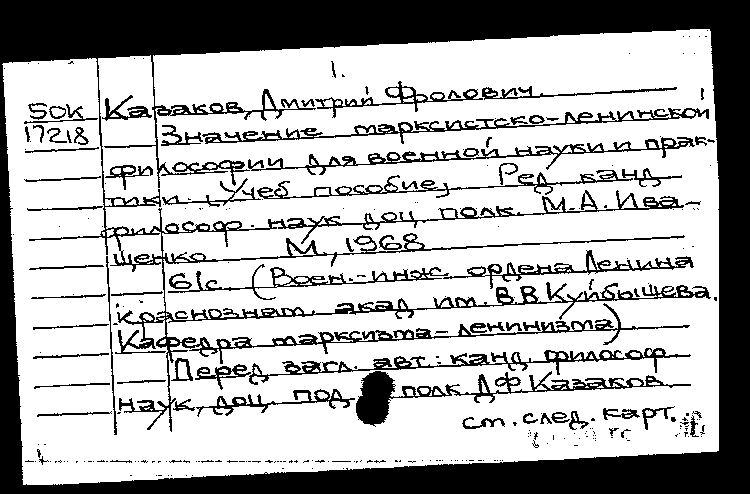 1.
50К Казаков, Дмитрий Фролович.
17218 Значение марксистско-ленинской
философии для военной науки и прак-
тики. [Учеб пособие] Ред. канд.
философ. наук доц. полк. М.А. Ива-
щенко. М., 1968
61с. (Воен.-инж. ордена Ленина
краснознам. акад. им. В.В Куйбышева.
Кафедра марксизма-ленинизма)
Перед. загл. авт.: канд. философ.
наук, доц. под полк. Д.Ф Казаков.
см. след. карт.